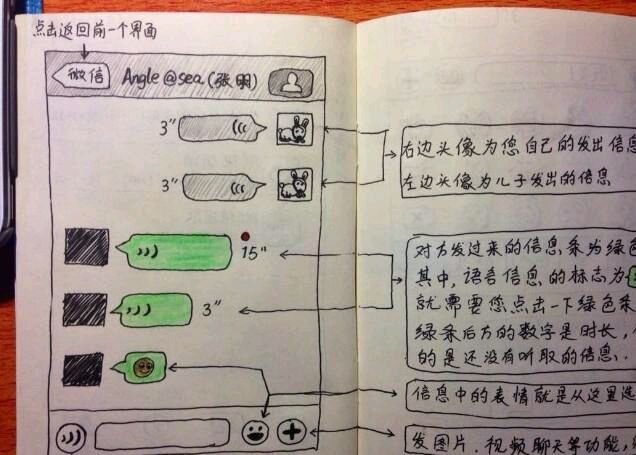 点击返回前一个界面
微信
Angle@sea(张明)
3"
3"
15"
3"
右边头像为您自己的发出信息
左边头像为儿子发出的信息
对方发过来的信息条为绿色
其中,语言信息的标志为
就需要您点击一下绿色条
绿条后方的数字是时长,
的是还没有听取的信息.
信息中的表情就是从这里选
发图片.视频聊天等功能,